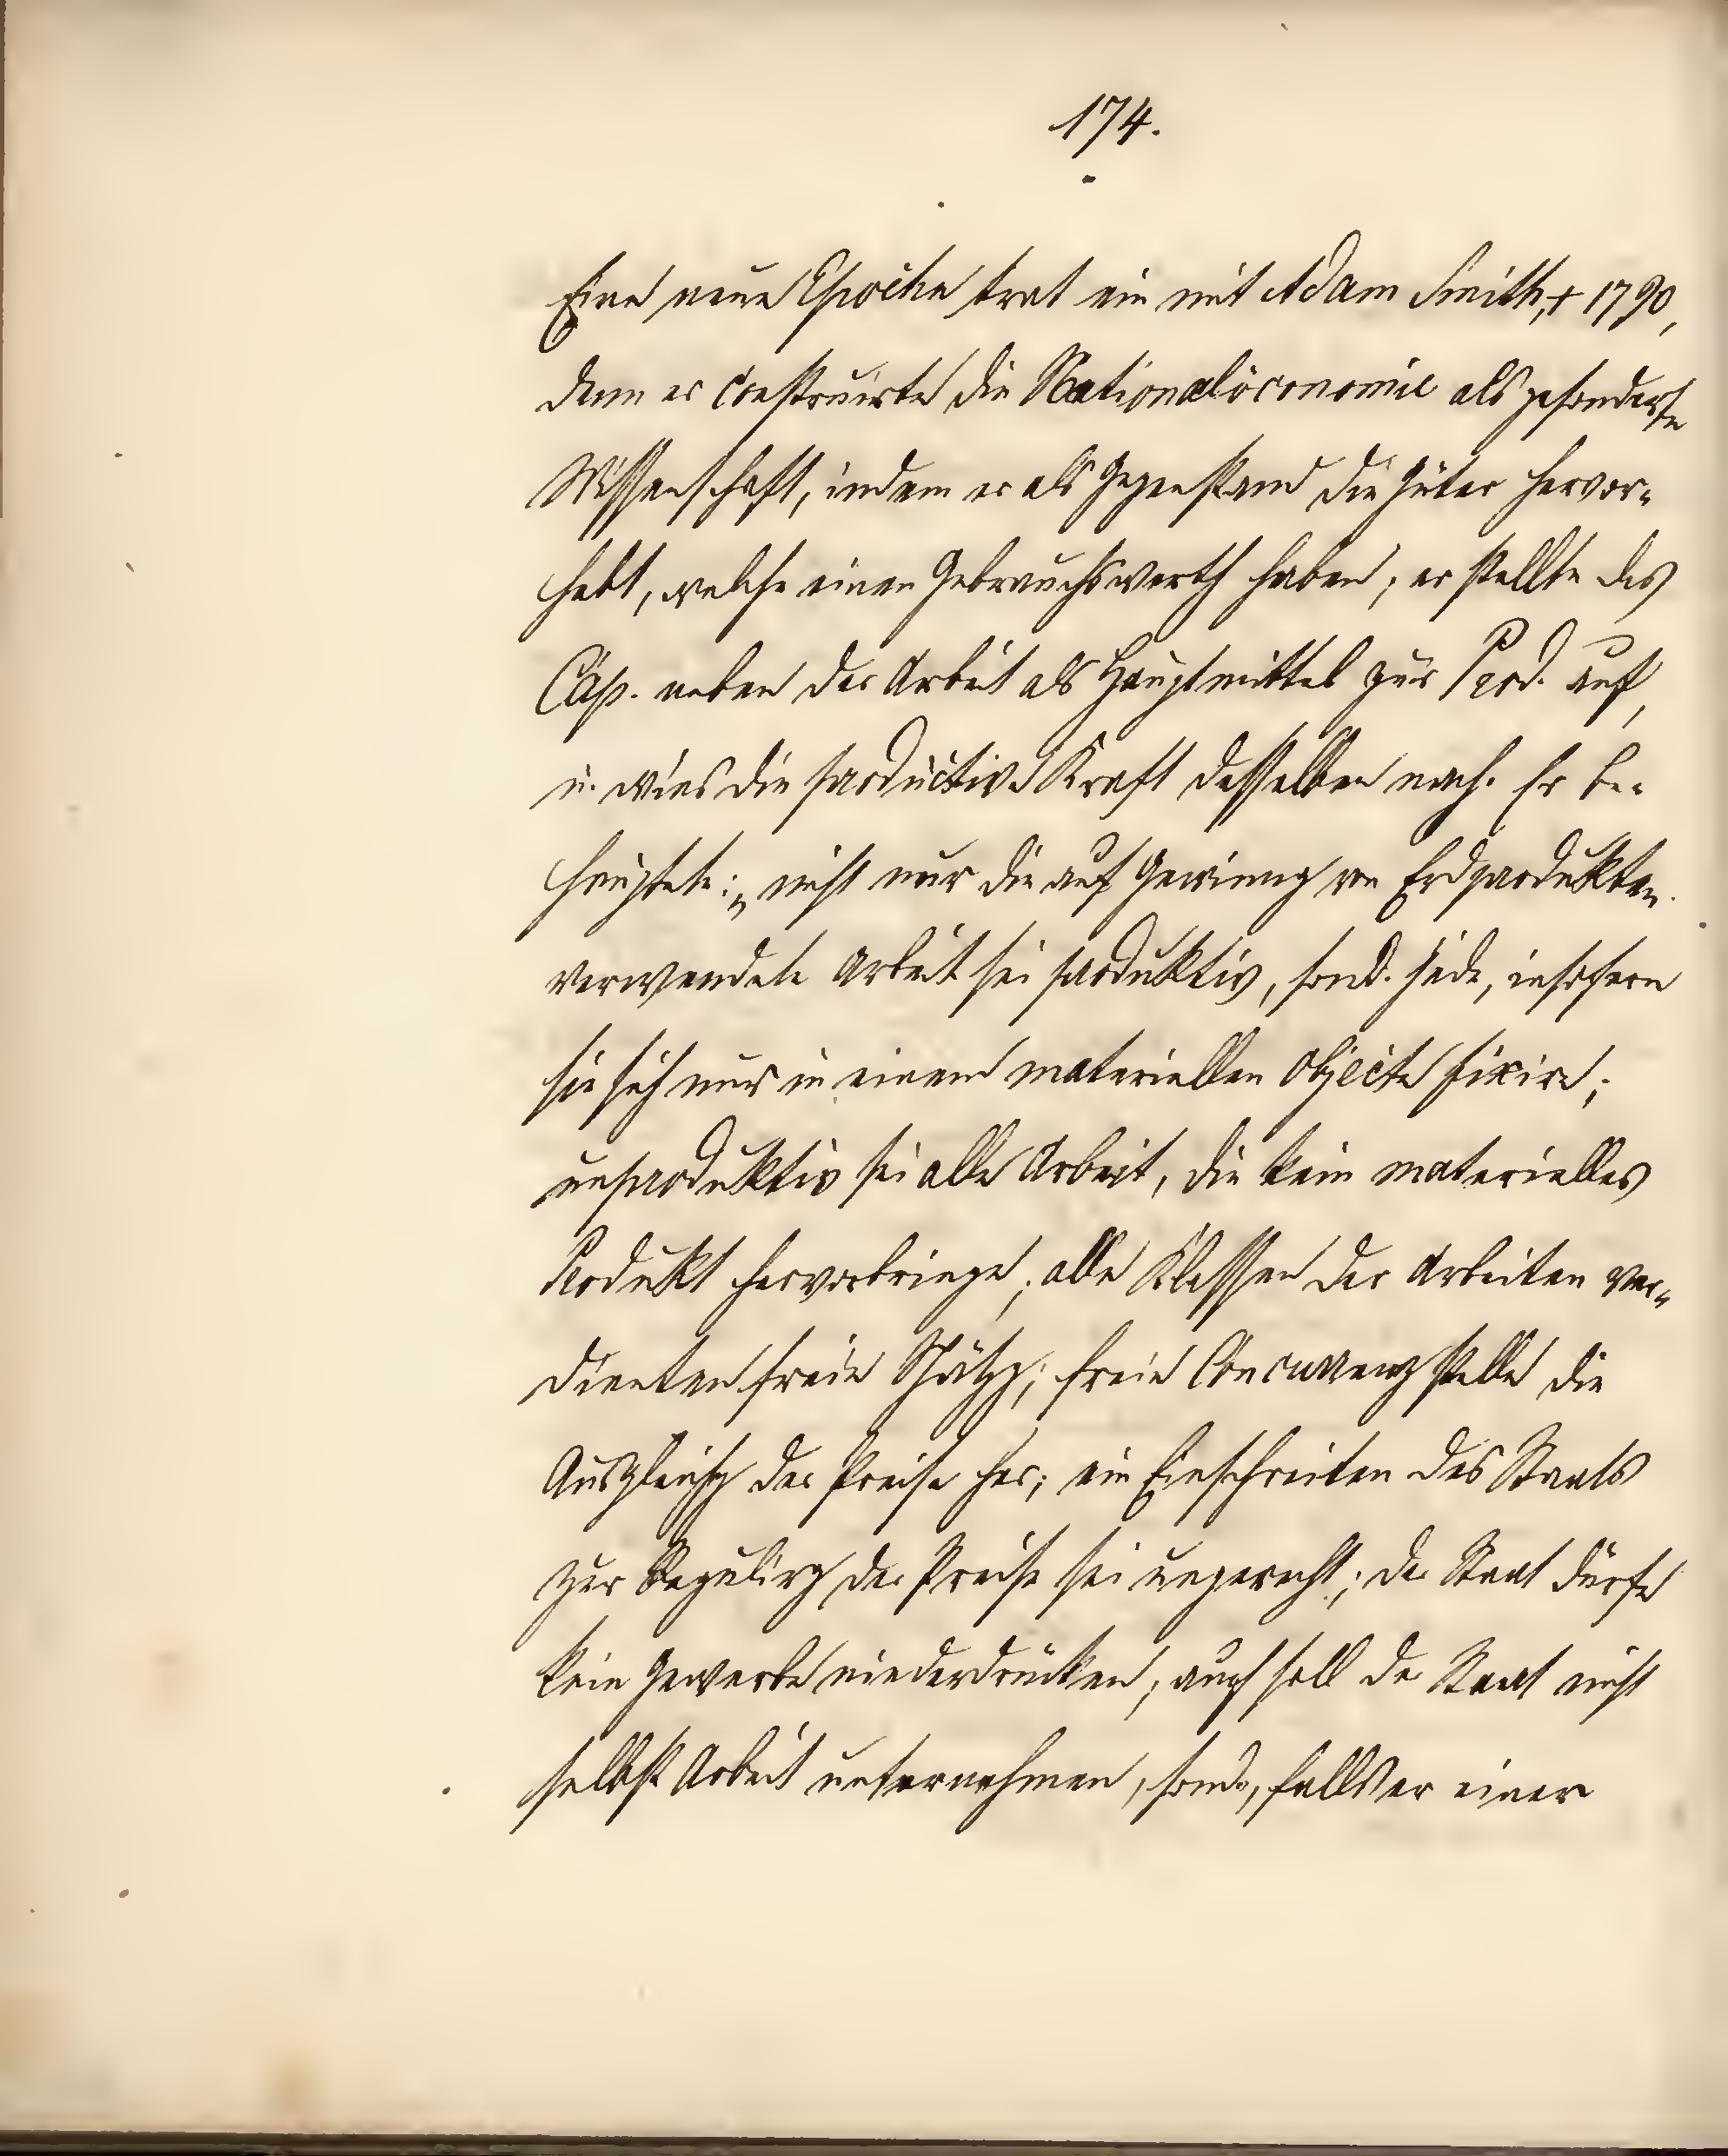 174.
Eine neue Epoche trat ein mit Adam Smith, + 1790,
denn er construirte die Nationalöconomie als gesonderte
Wissenschaft, indem er als Gegenstand die Güter hervor-
hebt, welche einen Gebrauchswerth haben; er stellte das
Cap. neben der Arbeit als Hauptmittel zur Prod. auf,
u. wies die productive Kraft desselben nach. Er be-
hauptete: „nicht nur die auf Gewinnung von Erdprodukten
verwendete Arbeit sei produktiv, sond. jede, insofern
sie sich nur in einem materiellen Objecte fixire;
unproduktiv sei alle Arbeit, die kein materielles
Produkt hervorbringe; alle Klassen der Arbeiten ver-
dienten freie Schätzg; freie Concurrenz stelle die
Ausgleichg der Preise her; ein Einschreiten des Staats
zur Regulirg der Preise sei ungerecht; der Staat dürfe
kein Gewerbe niederdrücken; auch soll der Staat nicht
selbst Arbeit unternehmen, sond., falls er einer